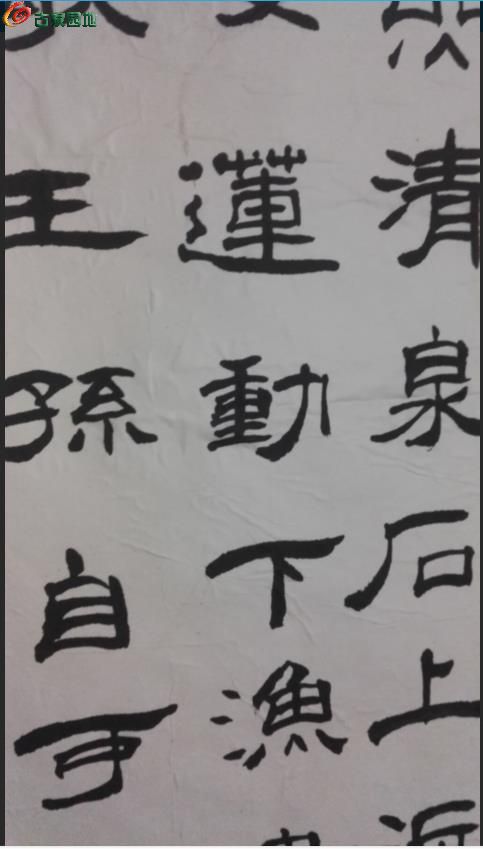 古泉园地
清泉石上
蓮動下漁
王孫自可